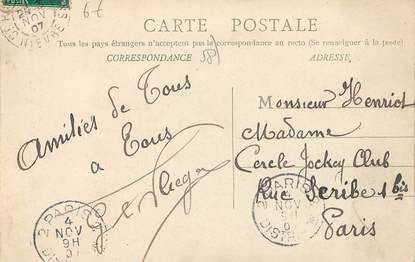 6-6
CARTE POSTALE
Tous les pays étrangers n'acceptent pas la correspondance au recto (Se renseigner à la poste)
CORRESPONDANCE
58
ADRESSE
NOV
07
Amitiés de Tous
a Tous
Monsieur Henriot
Madame
Cercle Jockey Club
Rue Scribe 1 bis
Paris
PARIS
4
NOV
9H
07
PARIS
4
NOV
9H
07
DISTR